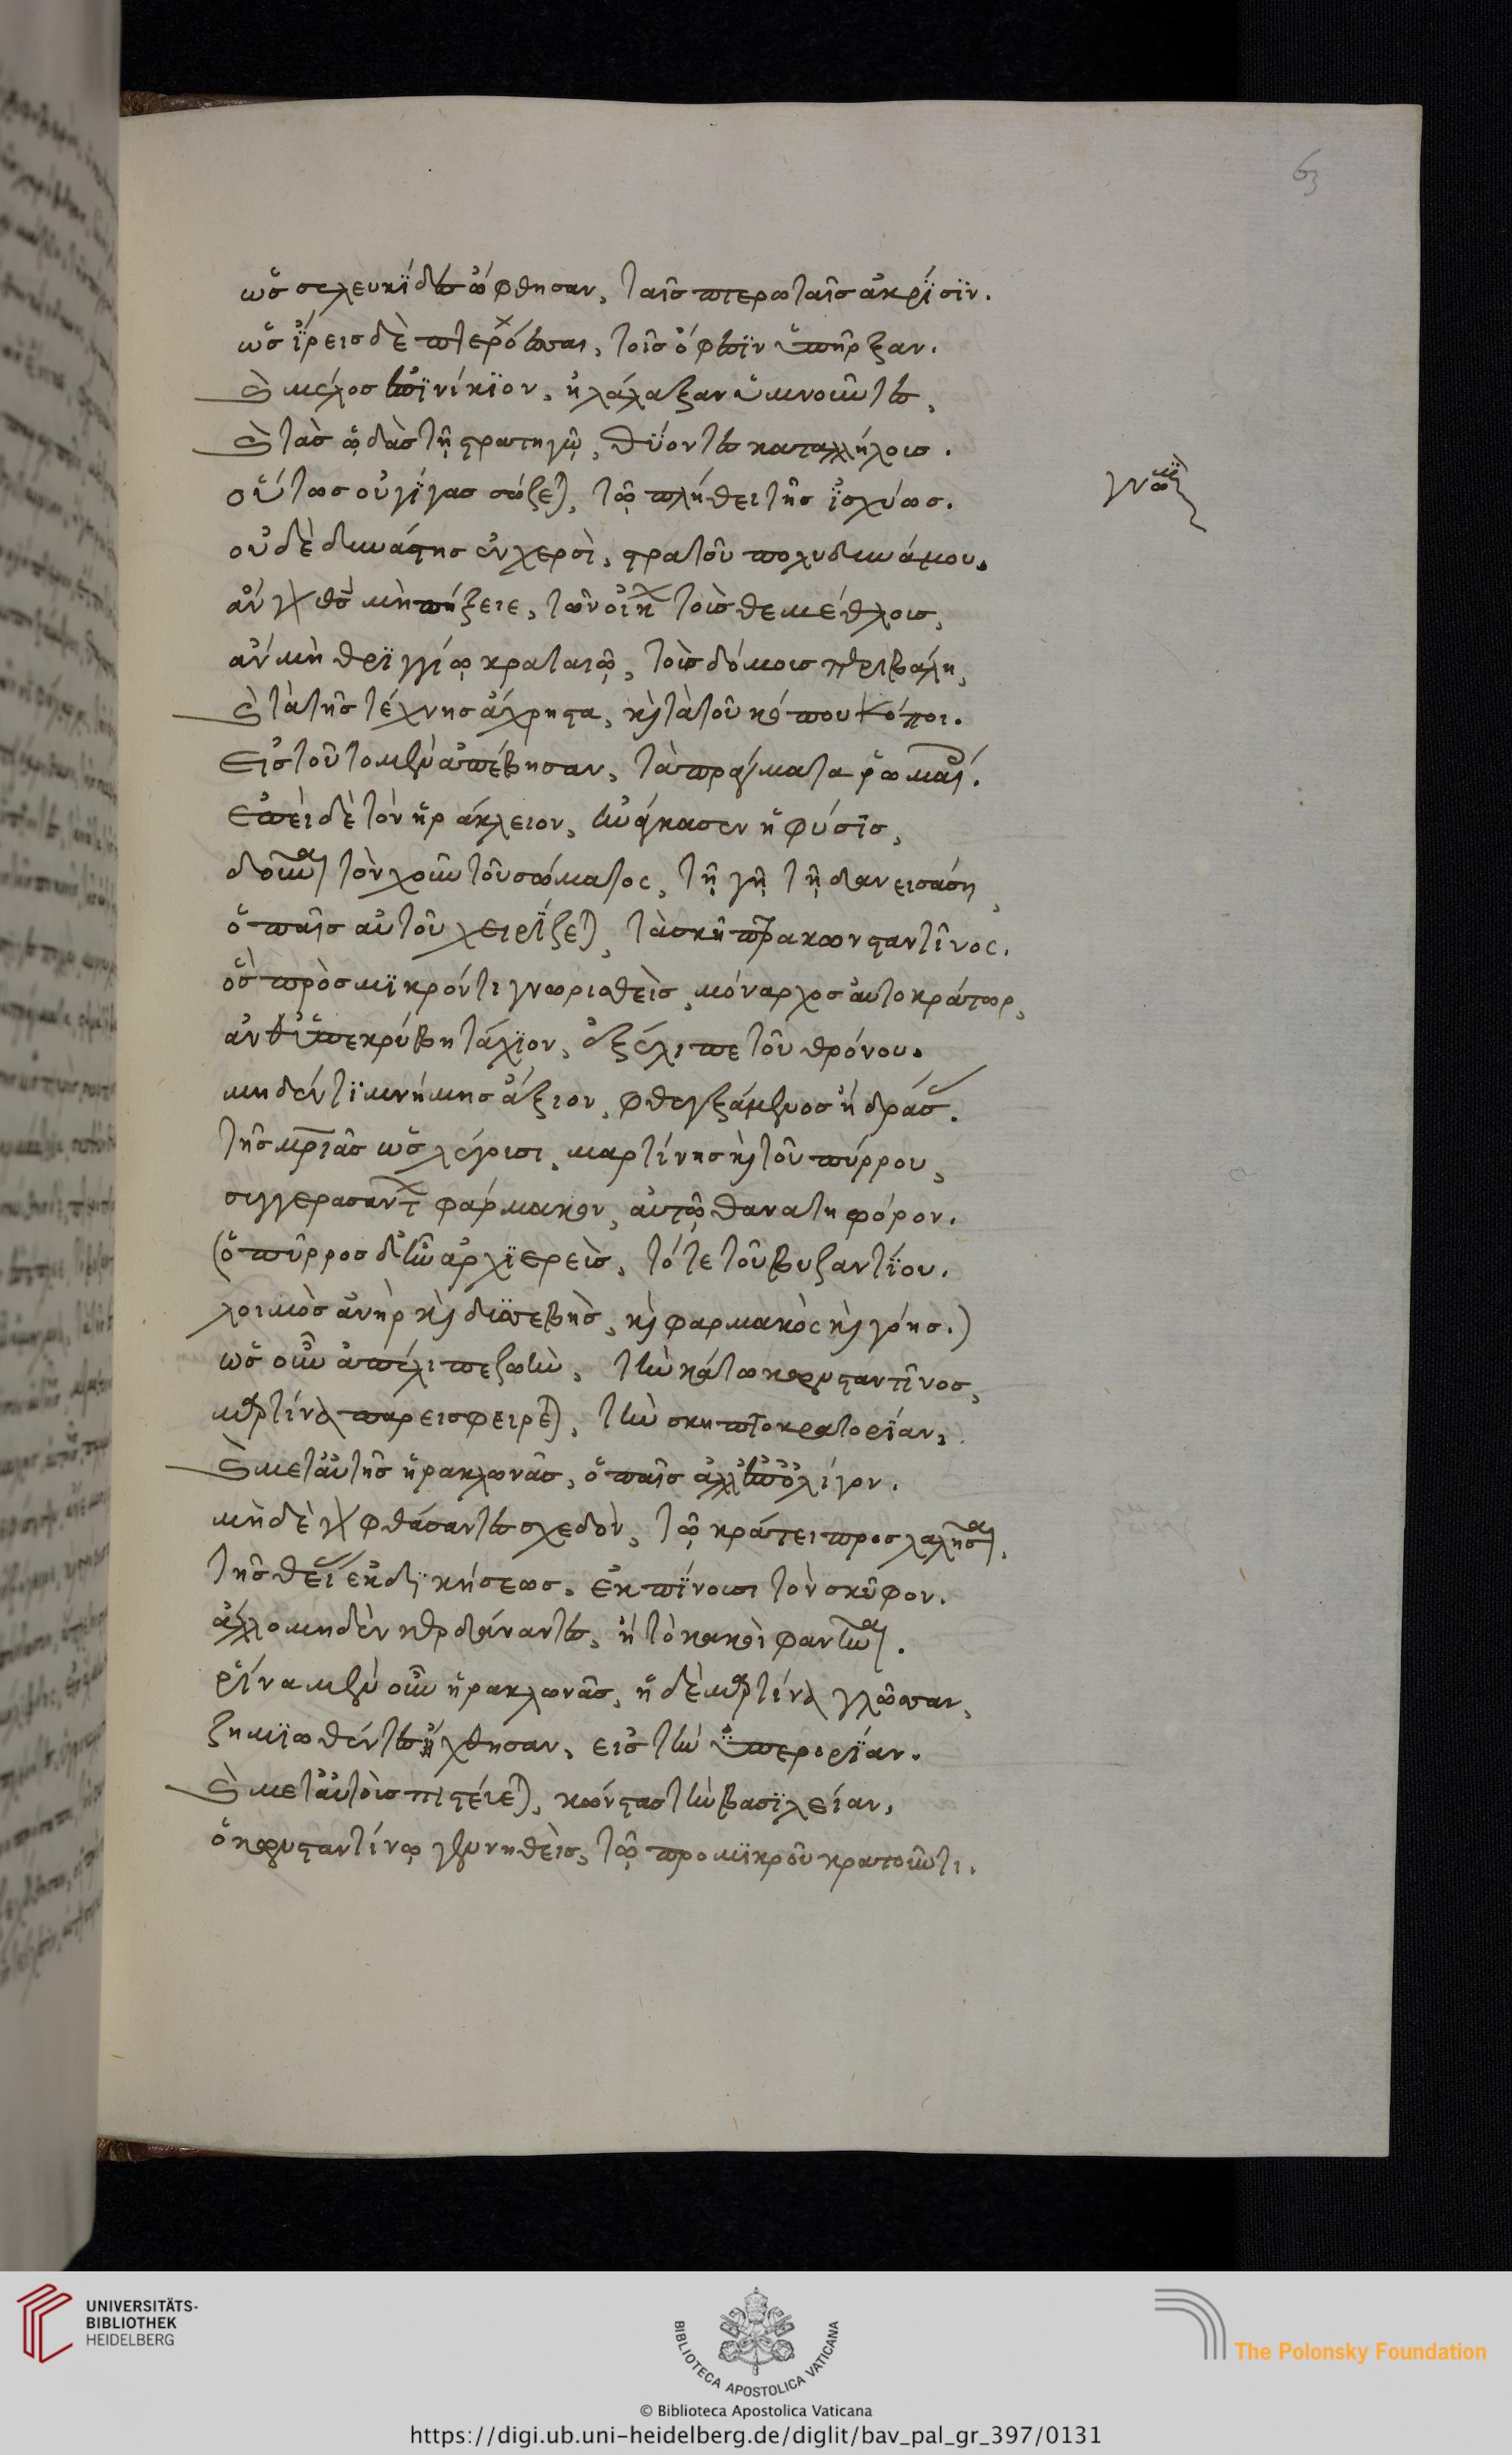 63
ὡς σελευκίδες ὤφθησαν, ταῖς πτερωταῖς ἀκρίσιν.
ὡς ἴρεις δὲ πτερόεσσαι, τοῖς ὄφεσιν ὑπῆρξαν.
καὶ μέλος ἐπινίκιον, ἠλάλαξαν ὑμνοῦντες,
καὶ τὰς ᾠδὰς τῇ στρατηγῷ, θύοντες καταλλήλοις.
οὕτως οὐ γίγας σώζεται, τῷ πλήθει τῆς ἰσχύως.
οὐδὲ δυνάστης ἐν χερσὶ, στρατοῦ πολυδυνάμου.
ἂν γὰρ θεὸς μὴ πήξειε, τῶν οἴκων τοῖς θεμέθλοις,
ἂν μὴ θριγγίῳ κραταιῷ, τοῖς δόμοις περιβάλη,
καὶ τὰ τῆς τέχνης ἄχρηστα, καὶ τὰ τοῦ κόπου κόποι.
Εἰς τοῦτο μὲν ἀπέβησαν, τὰ πράγματα ῥωμαίοις.
ἐπεὶ δὲ τὸν ἡράκλειον, ἠνάγκασεν ἡ φύσις,
δοῦναι τὸν χοῦν τοῦ σώματος, τῇ γῇ τῇ δανεισάσῃ
ὁ παῖς αὐτοῦ χειρίζεται, τὰ σκῆπτρα κωνσταντῖνος.
ὃς πρὸς μικρόν τι γνωρισθεὶς, μόναρχος αὐτοκράτωρ,
ἀνθυπεκρύβη τάχιον, ἐξέλιπε τοῦ θρόνου.
μηδέν τι μνήμης ἄξιον, φθεγξάμενος ἢ δράσας.
τῆς μητρυιᾶς ὡς λέγουσι, μαρτίνης καὶ τοῦ πύρρου,
συγκερασάντων φάρμακον, αὐτῷ θανατηφόρον.
(ὁ πύρρος δ' ἦν ἀρχιερεὺς, τότε τοῦ βυζαντίου.
λοιμὸς ἀνὴρ καὶ δυσσεβὴς, καὶ φαρμακὸς καὶ γόης.)
ὡς οὖν ἀπέλιπε ζωὴν, τὴν κάτω κωνσταντῖνος,
μαρτίνα παρεισφείρεται, τὴν σκηπτοκρατορίαν,
καὶ μετ' αὐτῆς ἡρακλωνᾶς, ὁ παῖς ἀλλ' ἐπ' ὀλίγον.
μὴ δὲ γὰρ φθάσαντες σχεδὸν, τῷ κράτει προσλαλῆσαι,
τῆς θείας ἐκδικήσεως, ἐκπίνουσι τὸν σκύφον.
ἄλλο μηδὲν κερδάναντες, ἢ τὸ κακοὶ φανῆναι.
ῥῖνα μὲν οὖν ἡρακλωνᾶς, ἡ δὲ μαρτίνα γλῶσσαν,
ζημιωθέντες ἤχθησαν, εἰς τὴν ὑπερορίαν.
καὶ μετ' αὐτοὺς πιστεύεται, κώνστας τὴν βασιλείαν,
ὁ κωνσταντίνῳ γεννηθεὶς, τῷ προ μικροῦ κρατοῦντι.
UNIVERSITÄTS-
BIBLIOTHEK
HEIDELBERG
BIBLIOTECA APOSTOLICA VATICANA
The Polonsky Foundation
© Biblioteca Apostolica Vaticana
https://digi.ub.uni-heidelberg.de/diglit/bav_pal_gr_397/0131